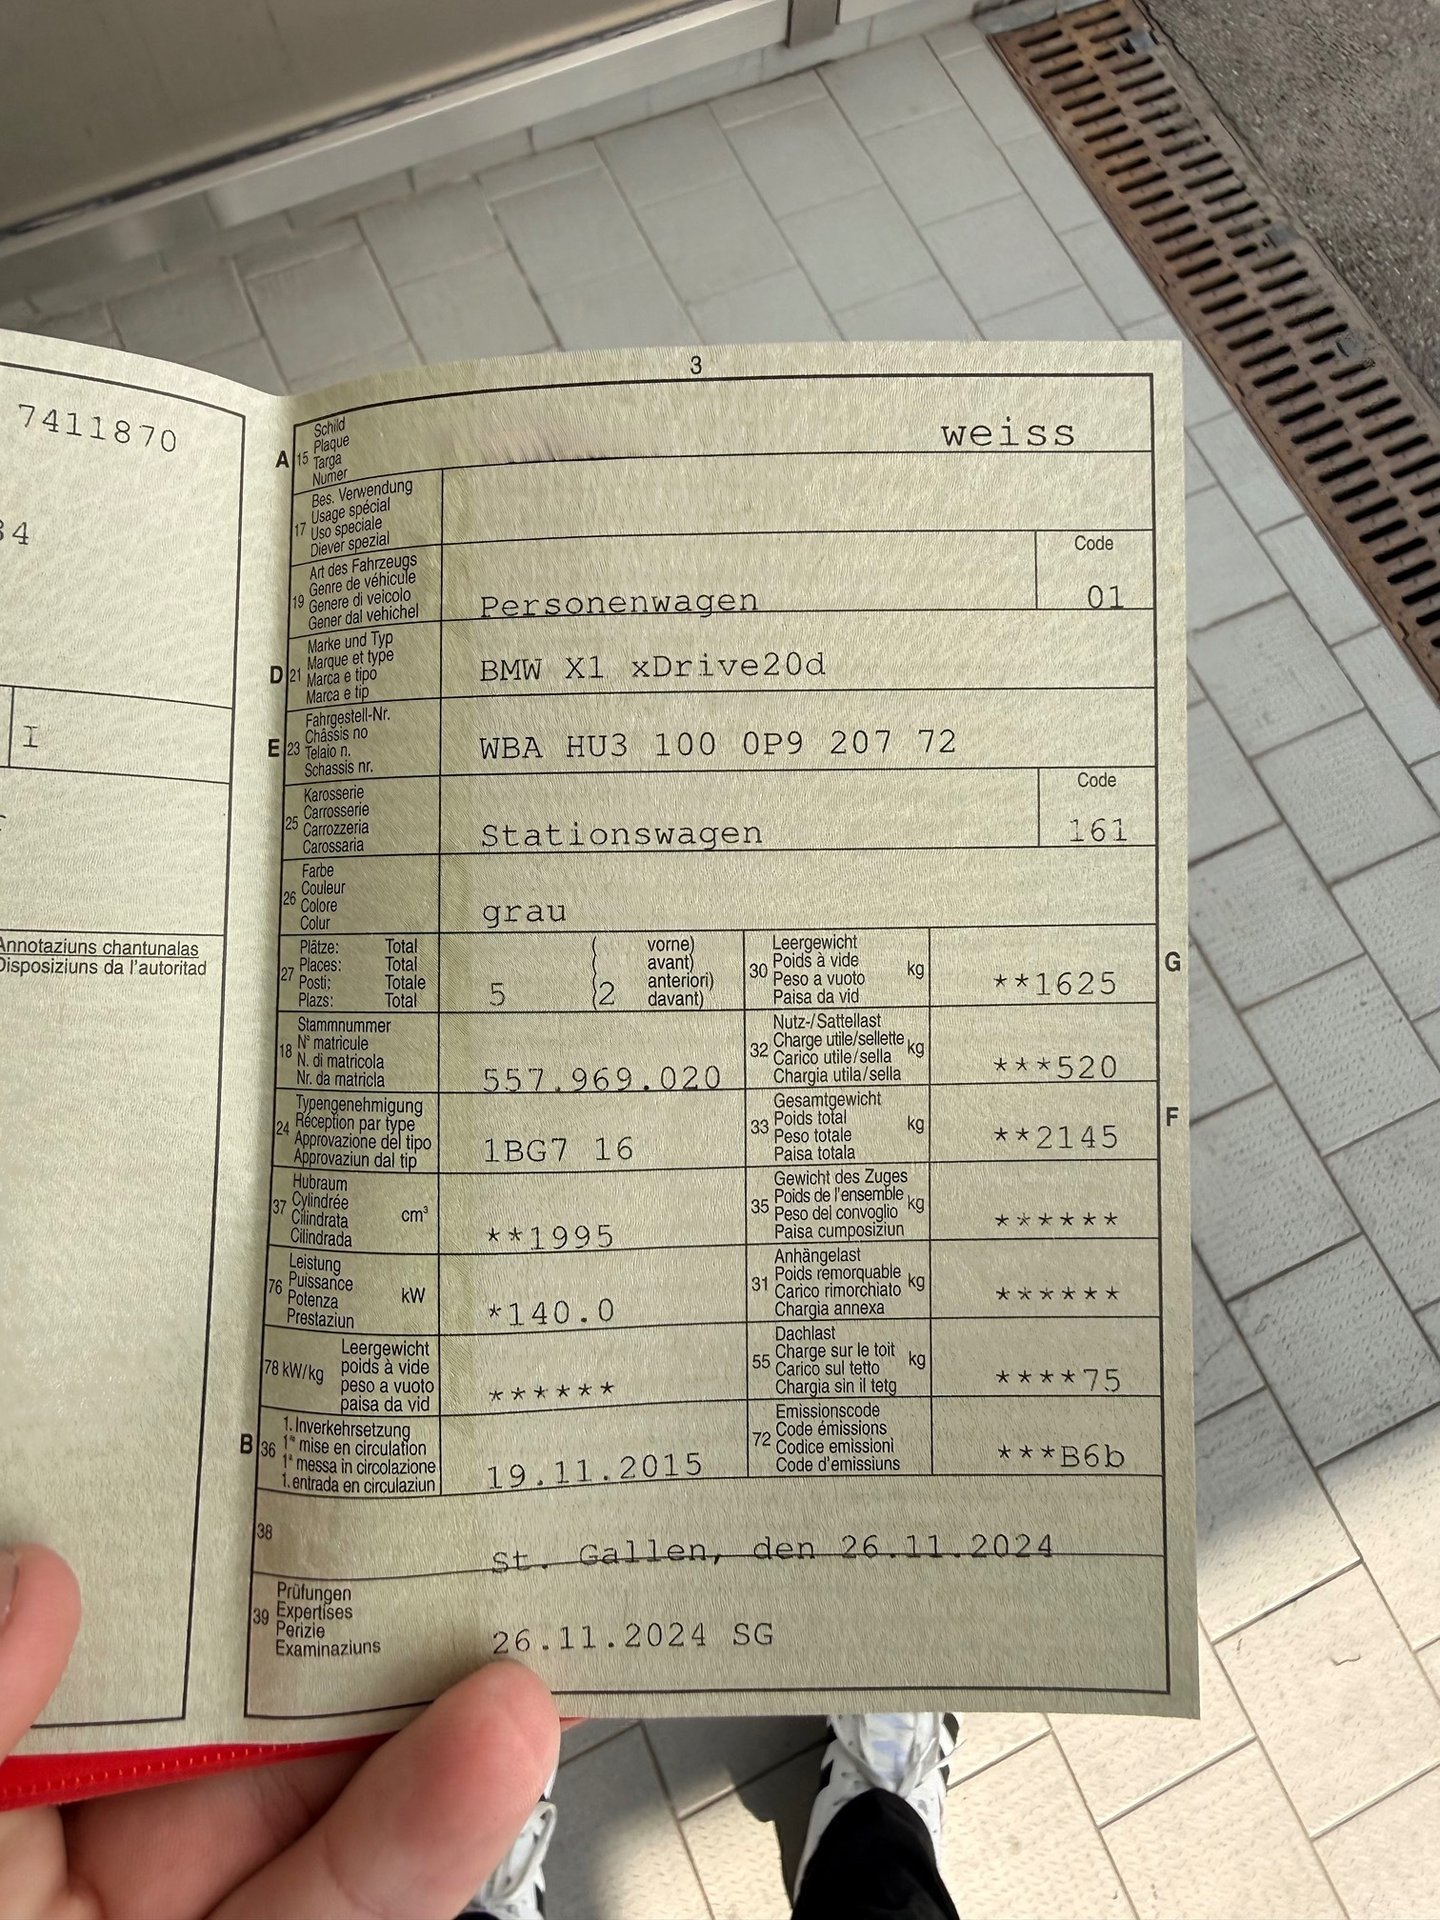 7411870
34
I
Annotaziuns chantunalas
Disposiziuns da l'autoritad
3
A 15 Schild
Plaque
Targa
Numer
weiss
17 Bes. Verwendung
Usage spécial
Uso speciale
Diever spezial
19 Art des Fahrzeugs
Genre de véhicule
Genere di veicolo
Gener dal vehichel
Personenwagen
Code
01
D 21 Marke und Typ
Marque et type
Marca e tipo
Marca e tip
BMW X1 xDrive20d
E 23 Fahrgestell-Nr.
Châssis no
Telaio n.
Schassis nr.
WBA HU3 100 0P9 207 72
25 Karosserie
Carrosserie
Carrozzeria
Carossaria
Stationswagen
Code
161
26 Farbe
Couleur
Colore
Colur
grau
27 Plätze: Total
Places: Total
Posti: Totale
Plazs: Total
5
(2
vorne)
avant)
anteriori)
davant)
30 Leergewicht
Poids à vide
Peso a vuoto
Paisa da vid
kg
**1625
G
18 Stammnummer
N° matricule
N. di matricola
Nr. da matricla
557.969.020
32 Nutz-/Sattellast
Charge utile/sellette
Carico utile/sella
Chargia utila/sella
kg
***520
24 Typengenehmigung
Réception par type
Approvazione del tipo
Approvaziun dal tip
1BG7 16
33 Gesamtgewicht
Poids total
Peso totale
Paisa totala
kg
**2145
F
37 Hubraum
Cylindrée
Cilindrata
Cilindrada
cm³
**1995
35 Gewicht des Zuges
Poids de l'ensemble
Peso del convoglio
Paisa cumposiziun
kg
******
76 Leistung
Puissance
Potenza
Prestaziun
kW
*140.0
31 Anhängelast
Poids remorquable
Carico rimorchiato
Chargia annexa
kg
******
78 kW/kg
Leergewicht
poids à vide
peso a vuoto
paisa da vid
******
55 Dachlast
Charge sur le toit
Carico sul tetto
Chargia sin il tetg
kg
****75
B 36 1. Inverkehrsetzung
1re mise en circulation
1a messa in circolazione
1. entrada en circulaziun
19.11.2015
72 Emissionscode
Code émissions
Codice emissioni
Code d'emissiuns
***B6b
38
St. Gallen, den 26.11.2024
39 Prüfungen
Expertises
Perizie
Examinaziuns
26.11.2024 SG